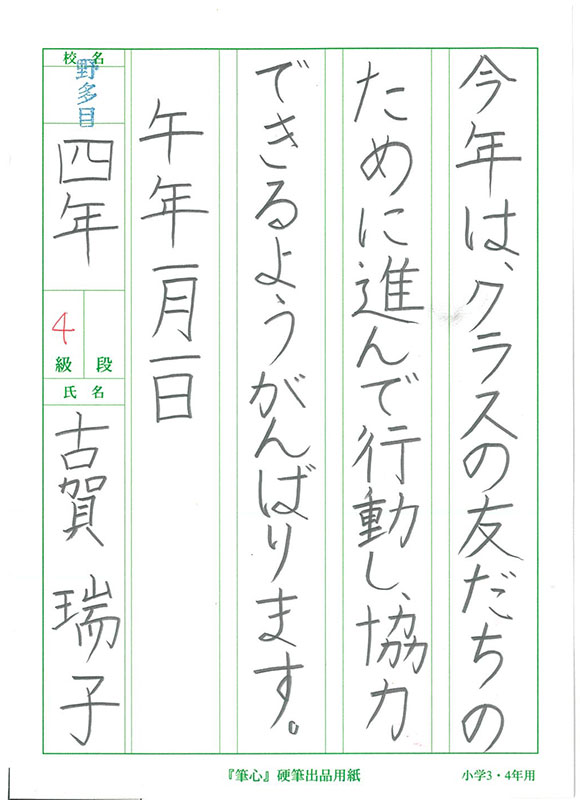 今年は、クラスの友だちの
ために進んで行動し、協力
できるようがんばります。
午年一月一日
校名
野多目
四年
4
級
段
氏名
古賀瑞子
『筆心』硬筆出品用紙
小学3・4年用